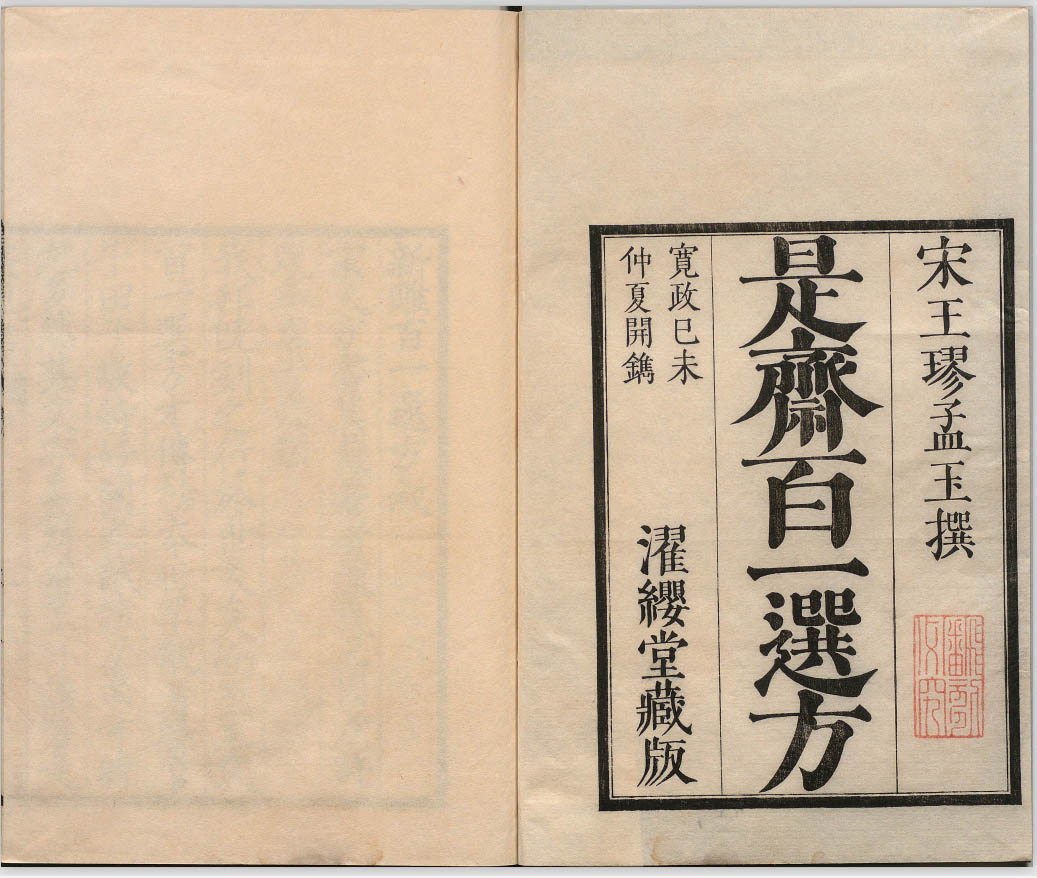 宋王璆孟玉撰
是齋百一選方
寛政巳未
仲夏開鐫
濯纓堂藏版